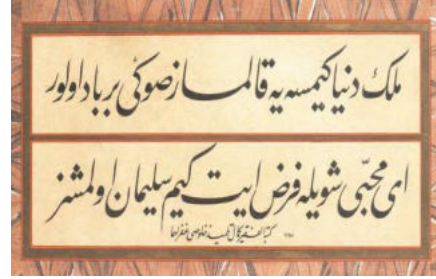 ملك دنيا كيمسه يه قالماز صوڭى برباد اولور
اى محبّى شويله فرض ايت كيم سليمان اولمشز
كتبه الفقير